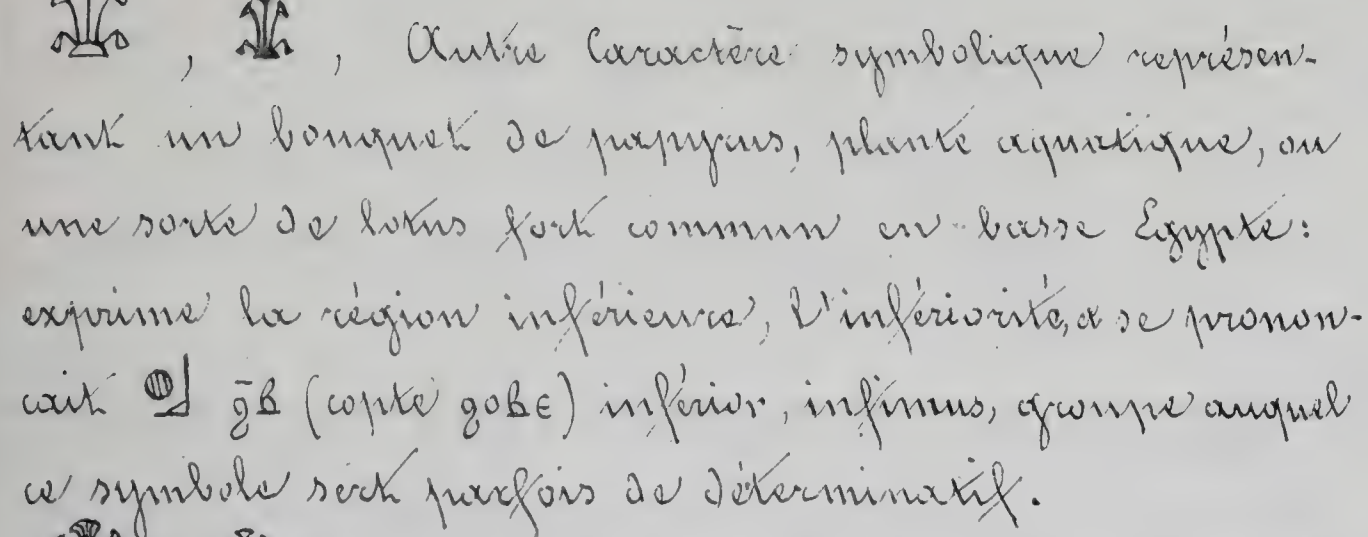 𓇇, 𓇇, Autre Caractère symbolique représen-
tant un bouquet de papyrus, plante aquatique, ou
une sorte de lotus fort commun en basse Egypte:
exprime la région inférieure, l'infériorité, & se pronon-
cait 𓐍𓃀 ϩ̄ⲃ (copte ϩⲟⲃⲉ) inférior, infimus, groupe auquel
ce symbole sert parfois de déterminatif.